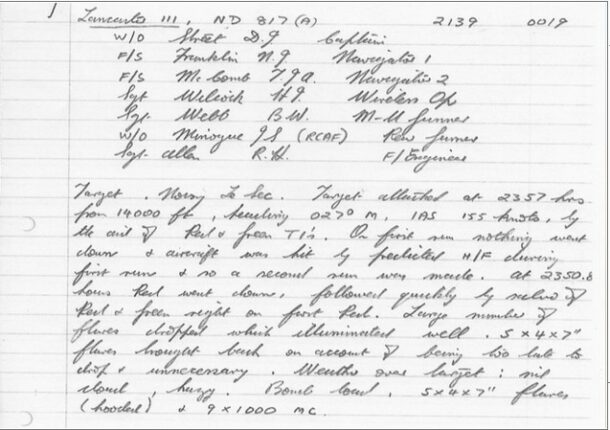 Lancaster III, ND 817 (A) 2139 0019
W/O Street D.J Captain
F/S Franklin N.J Navigator 1
F/S McComb T.J.A. Navigator 2
Sgt Wilcock H.J. Wireless Op
Sgt. Webb B.W. M-U Gunner
W/O Minogue J.S (RCAF) Rear Gunner
Sgt. Allen R.H. F/Engineer
Target. Noisy Le Sec. Target attacked at 2357 hrs
from 14000 ft, heading 027° M. IAS 155 knots, by
the aid of Red & Green TI's. On first run nothing went
down & aircraft was hit by predicted H/F during
first run & so a second run was made. At 2350.8
hours Red went down, followed quickly by salvo of
Red & Green right on first Red. Large number of
flares dropped which illuminated well. 5 x 4 x 7"
flares brought back on account of being too late to
drop & unnecessary. Weather over target: nil
cloud, hazy. Bomb load. 5 x 4 x 7" flares
(hooded) & 9 x 1000 MC.